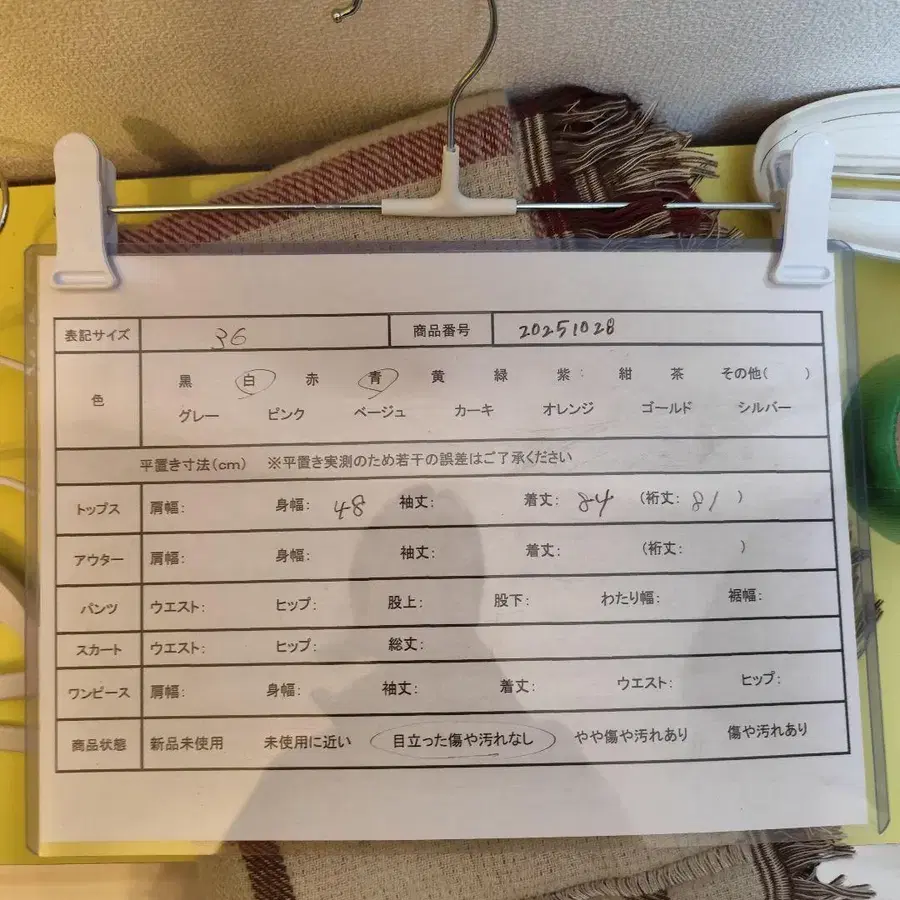 表記サイズ 36 商品番号 20251028
色 黒 白 赤 青 黄 緑 紫 紺 茶 その他( )
グレー ピンク ベージュ カーキ オレンジ ゴールド シルバー
平置き寸法(cm) ※平置き実測のため若干の誤差はご了承ください
トップス 肩幅: 身幅: 48 袖丈: 着丈: 84 (裄丈: 81 )
アウター 肩幅: 身幅: 袖丈: 着丈: (裄丈: )
パンツ ウエスト: ヒップ: 股上: 股下: わたり幅: 裾幅:
スカート ウエスト: ヒップ: 総丈:
ワンピース 肩幅: 身幅: 袖丈: 着丈: ウエスト: ヒップ:
商品状態 新品未使用 未使用に近い 目立った傷や汚れなし やや傷や汚れあり 傷や汚れあり